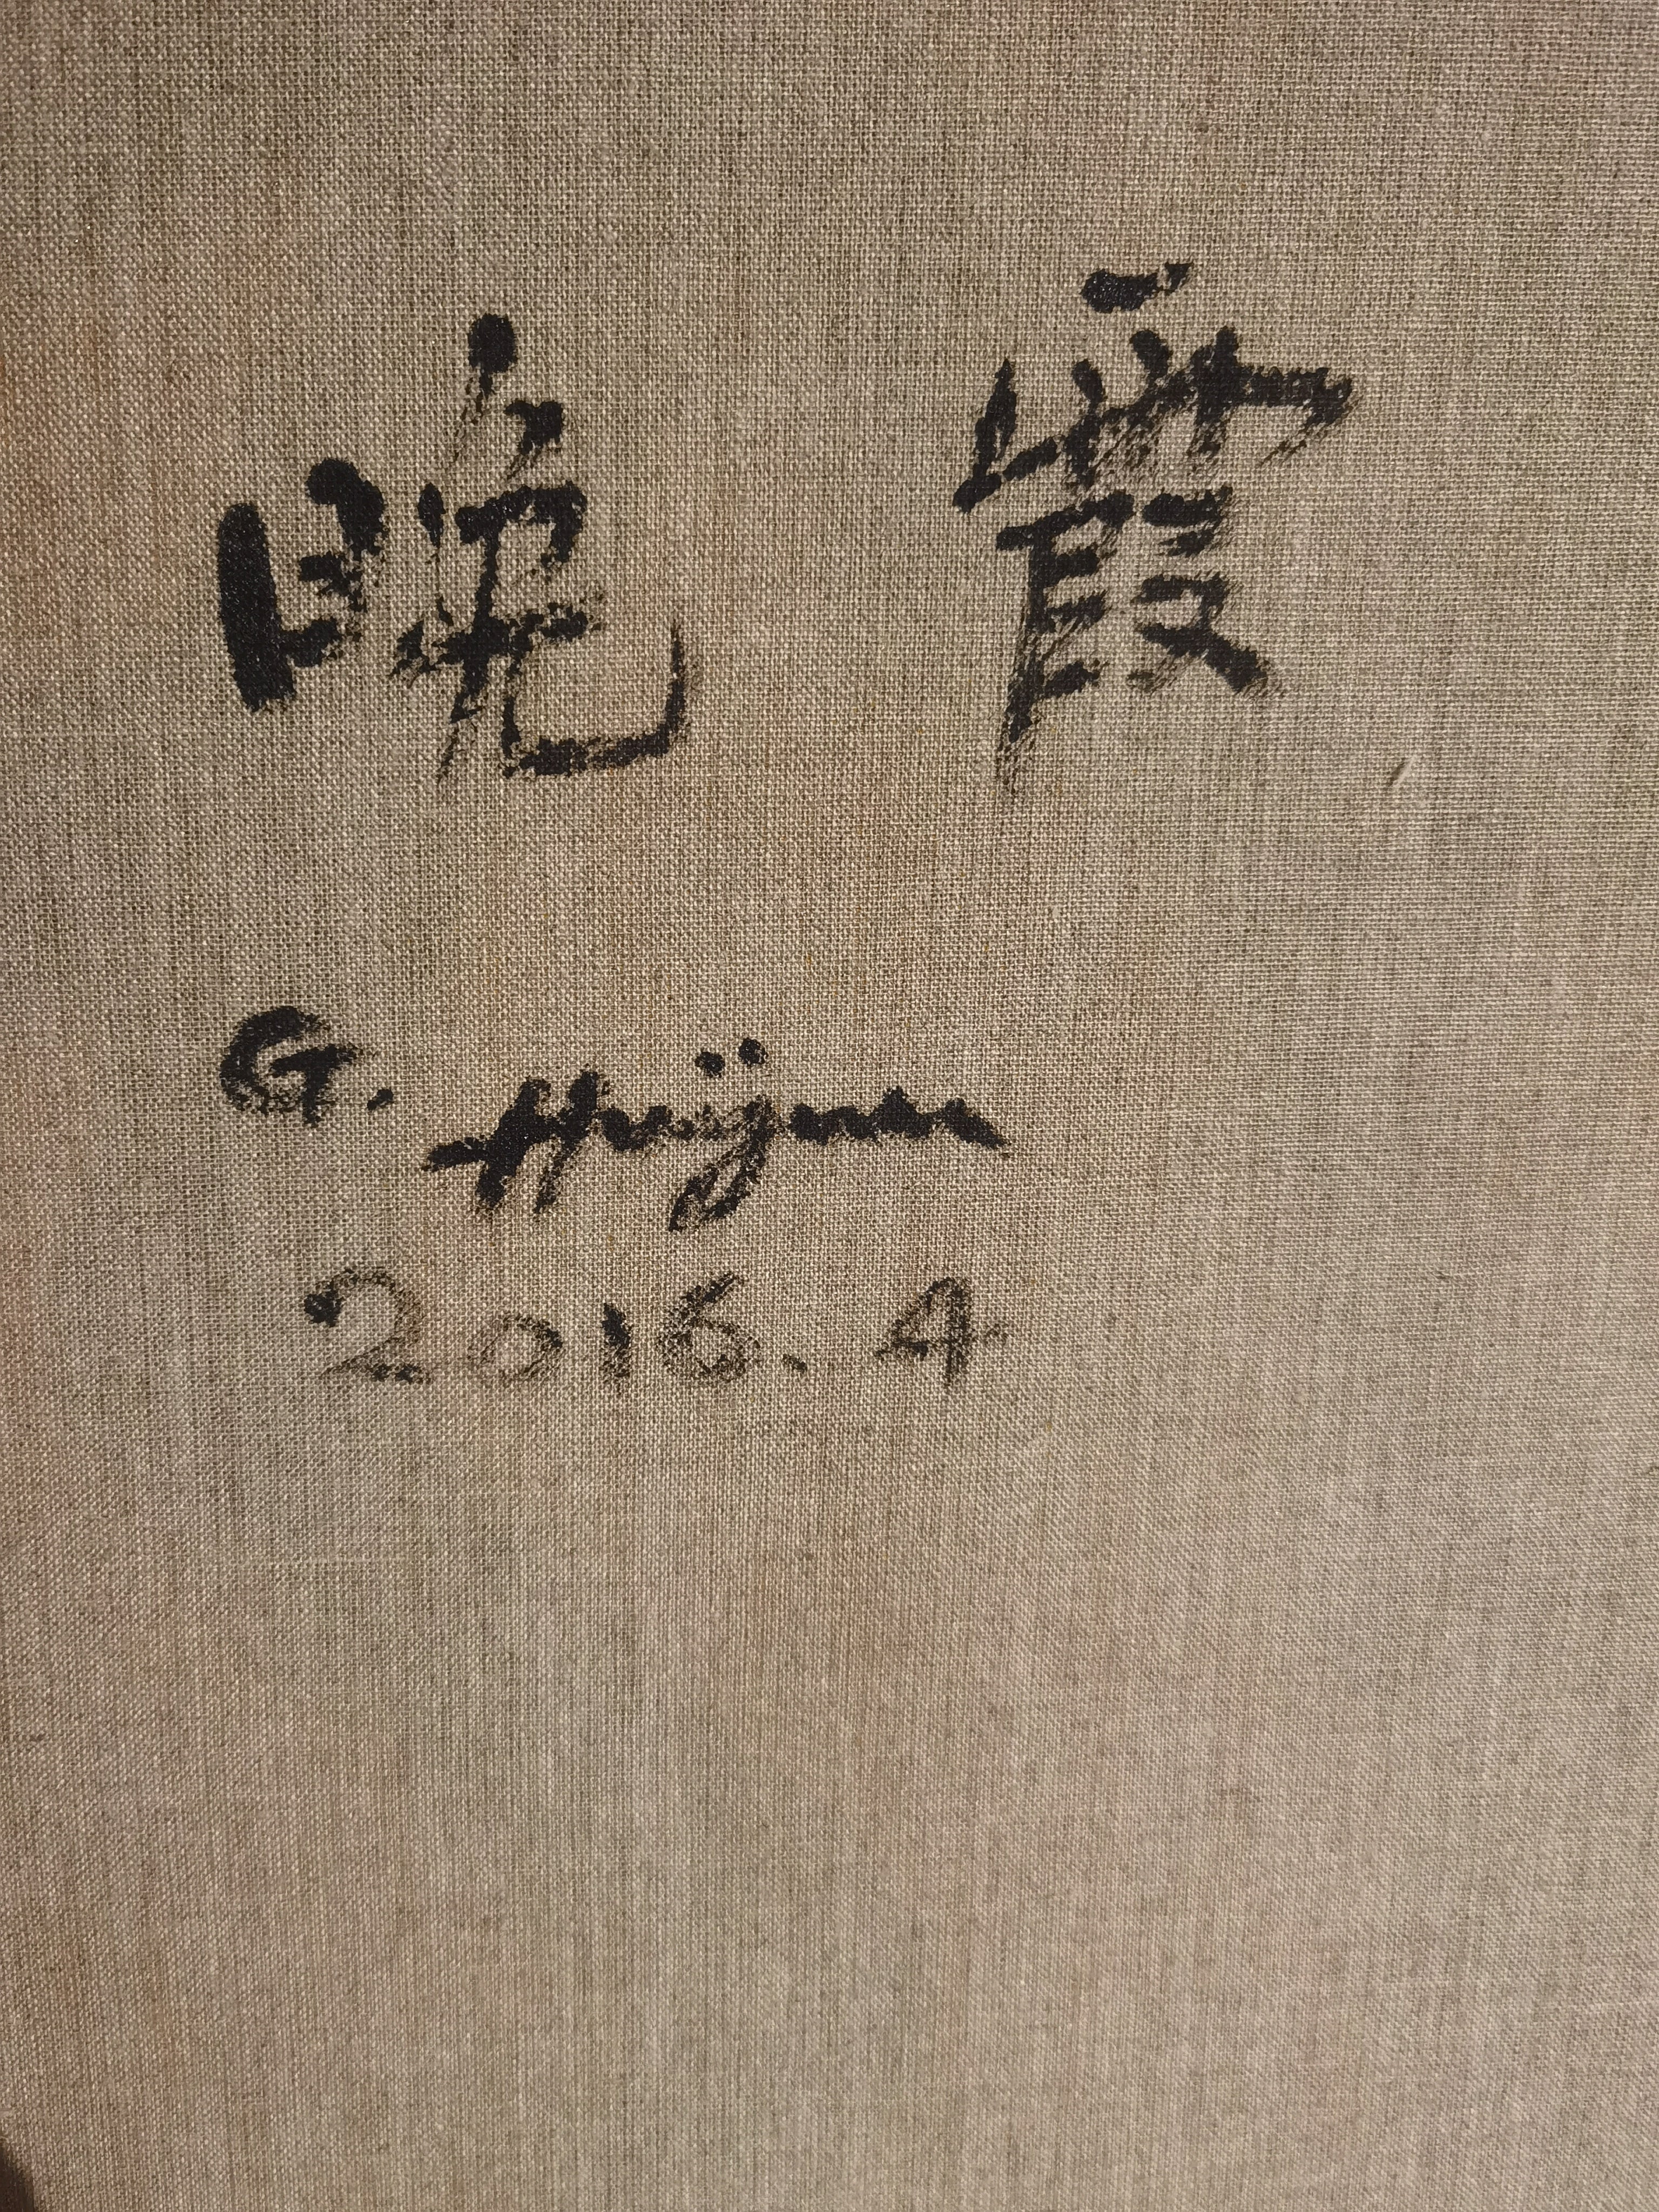 晚 霞
G. Huijuan
2016. 4